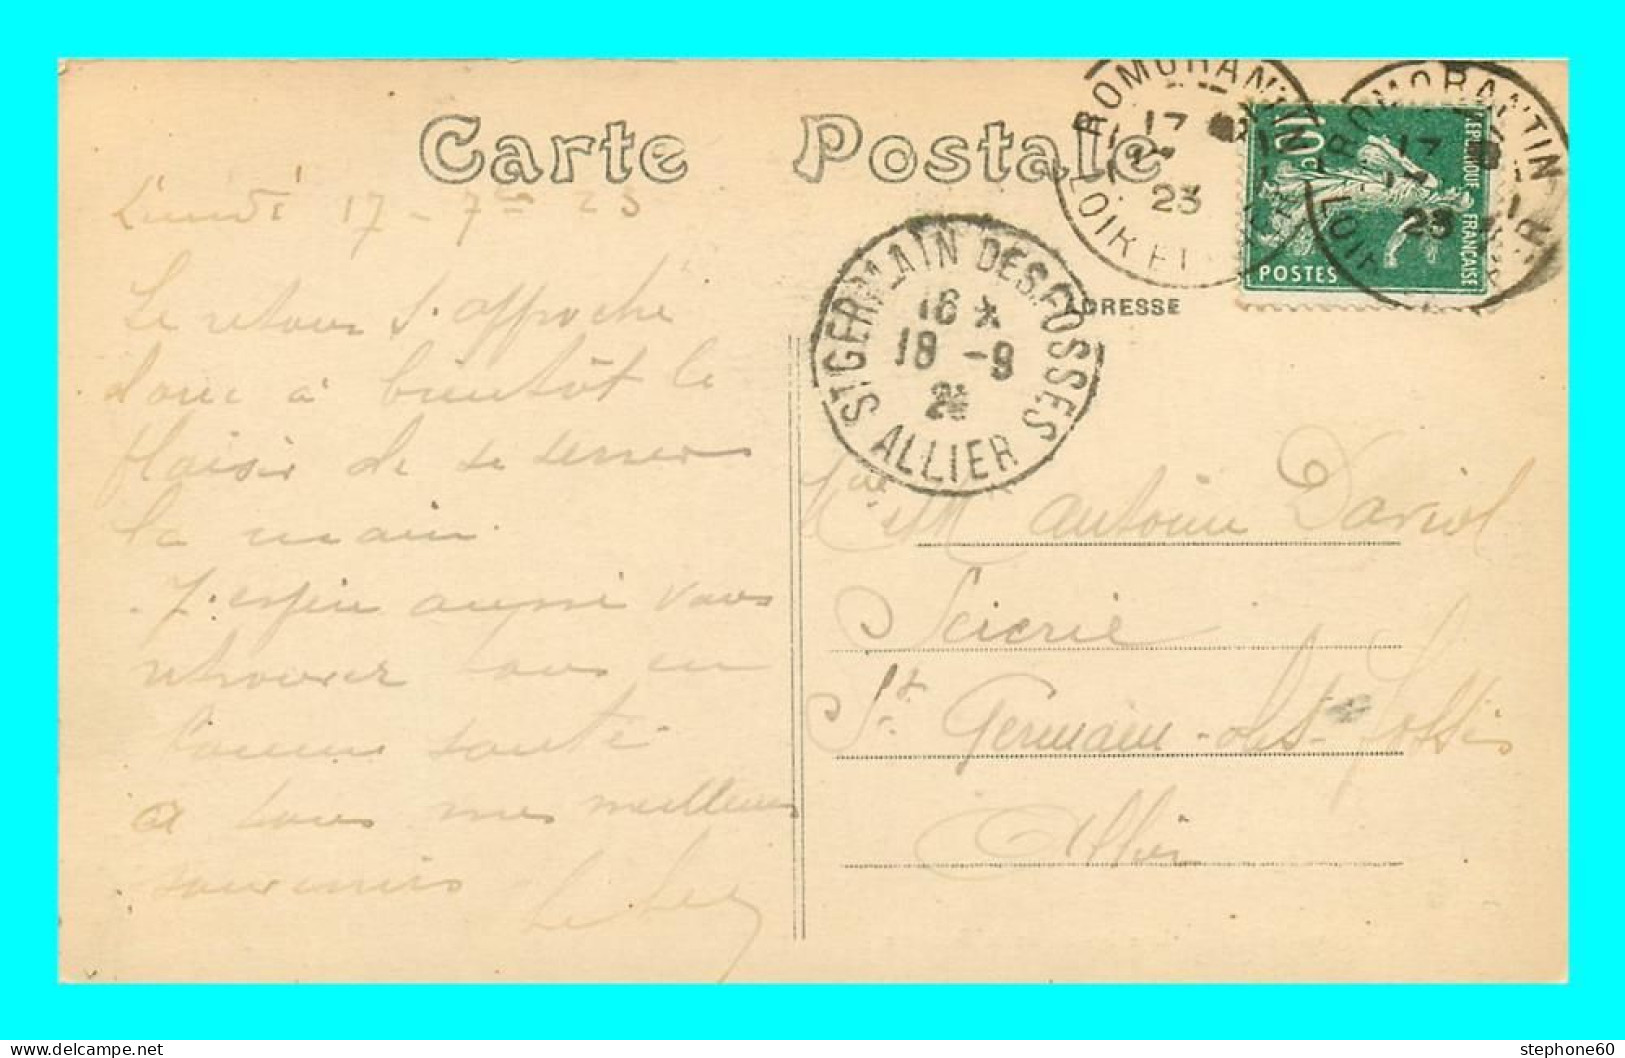 Carte Postale
ROMORANTIN
17
23
LOIR ET
ROMORANTIN
17
23
LOIR
10c
REPUBLIQUE FRANÇAISE
POSTES
ST GERMAIN DES FOSSES
16 *
18 -9
ALLIER
ADRESSE
Lundi 17 - 7bre 23
Le retour s'approche
donc à bientôt le
plaisir de se serrer
la main.
J'espère aussi vous
retrouver tous en
bonne santé
à tous mes meilleurs
souvenirs
Antoine David
Scierie
St Germain-des-Fossés
Allier
stephone60